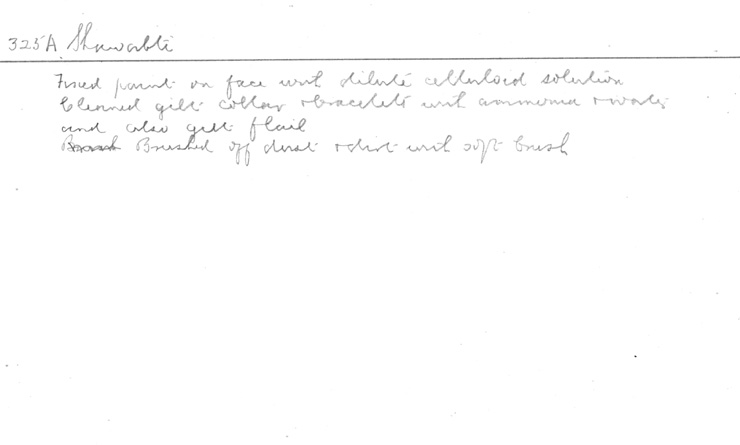 325A Shawabti
Fixed paint on face with dilute celluloid solution
Cleaned gilt collar + bracelets with ammonia + water
and also gilt flail
Brushed off dust + dirt with soft brush